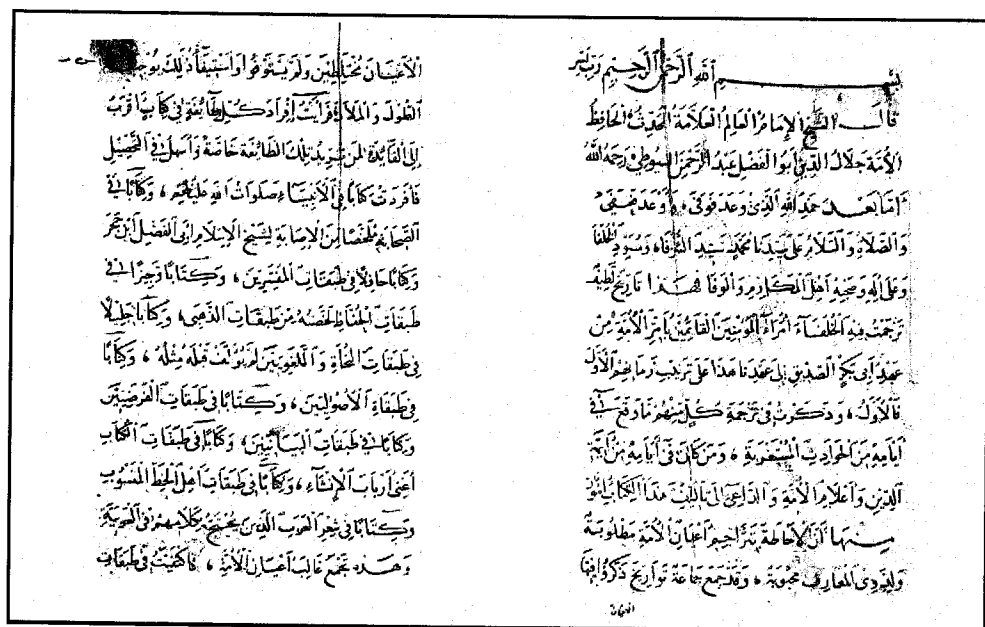 بسم الله الرحمن الرحيم رب يسر
قال الشيخ الإمام العالم العلامة المحدث الحافظ
الأمة جلال الدين أبو الفضل عبد الرحمن السيوطي رحمه الله
أما بعد حمد الله الذي وعد فوفى، وأوعد فعفى
والصلاة والسلام على سيدنا محمد سيد الشرفا، ومسود الخلفا
وعلى آله وصحبه أهل المكارم والوفا فهذا تاريخ لطيف
ترجمت فيه الخلفاء أمراء المؤمنين القائمين بامر الأمة من
عهد أبي بكر الصديق إلى عهدنا هذا على ترتيب زمانهم الأول
فالأول، وذكرت في ترجمة كل منهم ما وقع في
أيامه من الحوادث المستغربة، ومن كان في أيامه من أئمة
الدين وأعلام الأمة والداعي إلى تأليف هذا الكتاب أمور
منها أن الإحاطة بتراجم أعيان الأمة مطلوبة
ولذوي المعارف محبوبة، وقد جمع جماعة تواريخ ذكروا فيها
الأعيان
الأعيان مختلطين ولم يستوفوا واستيفاء ذلك يوجب
الطول والملال فرأيت إفراد كل طائفة في كتاب أقرب
إلى الفائدة لمن يريد تلك الطائفة خاصة وأسهل في التحصيل
فأفردت كتابا في الأنبياء صلوات الله عليهم، وكتابا في
الصحابة ملخصا من الإصابة لشيخ الإسلام أبي الفضل ابن حجر
وكتابا حافلا في طبقات المفسرين، وكتابا وجيزا في
طبقات الحفاظ لخصته من طبقات الذهبي، وكتابا جليلا
في طبقات النحاة والملغويين لم يؤلف قبله مثله، وكتابا
في طبقات الأصوليين، وكتابا في طبقات الفرضيين
وكتابا في طبقات البيانيين، وكتابا في طبقات الكتاب
أعني أرباب الإنشاء، وكتابا في طبقات أهل الخط المنسوب
وكتابا في شعر العرب الذين يحتج بكلامهم في العربية
وهذه تجمع غالب أعيان الأمة، فاكتفيت في طبقات